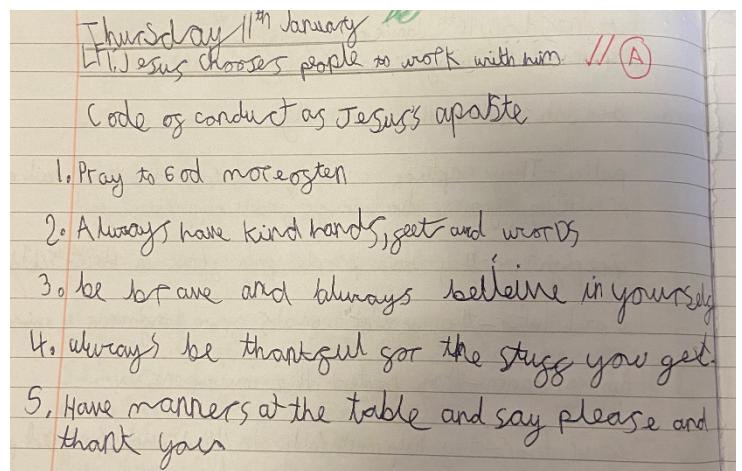 Thursday 11th January
LFI: Jesus chooses people to work with him. // A
Code of conduct as Jesus's apostte
1. Pray to God more often
2. Always have kind hands, feet and words
3. be brave and always belleive in yourself
4. always be thankful for the stuff you get.
5. Have manners at the table and say please and
thank you